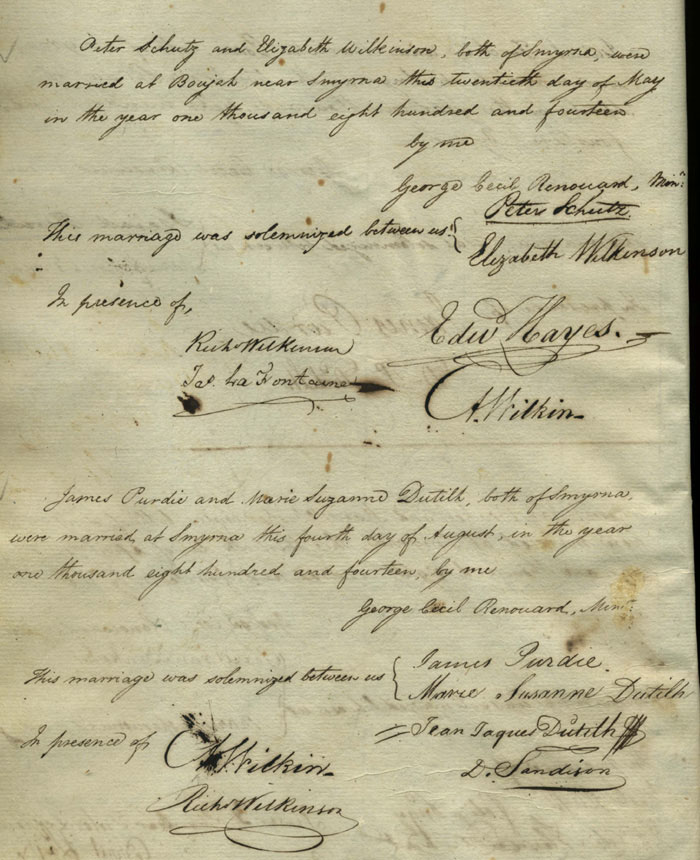 Peter Schutz and Elizabeth Wilkinson, both of Smyrna, were
married at Boujah near Smyrna this twentieth day of May
in the year one thousand eight hundred and fourteen
by me
George Cecil Renouard, Minr.
This marriage was solemnized between us { Peter Schutz
Elizabeth Wilkinson
In presence of,
Richd Wilkinson
Edw Hayes.
Jas. La Fontaine
A. Wilkin
James Purdie and Marie Suzanne Dutilh, both of Smyrna,
were married at Smyrna this fourth day of August, in the year
one thousand eight hundred and fourteen, by me
George Cecil Renouard, Minr.
This marriage was solemnized between us { James Purdie.
Marie Susanne Dutilh
In presence of
Jean Jaques Dutilh
A. Wilkin
D. Sandison
Richd Wilkinson